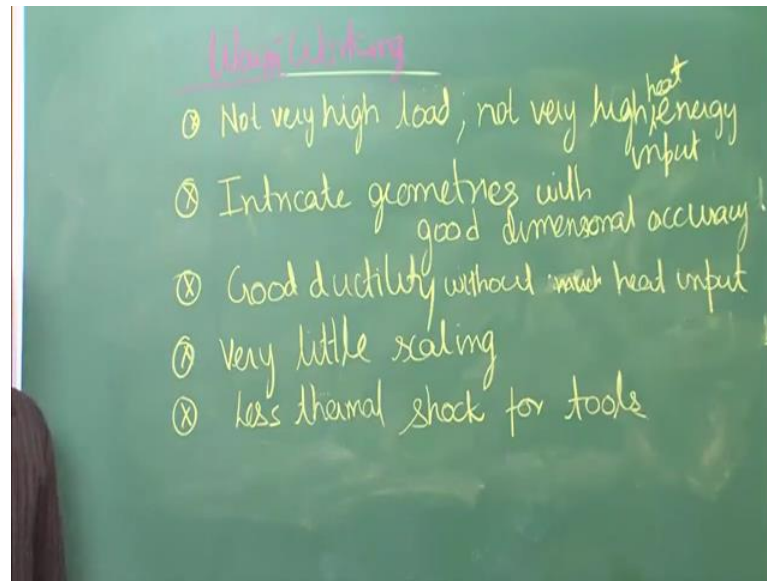 Warm Working
ⓧ Not very high load, not very high heat energy
input
ⓧ Intricate geometries with
good dimensional accuracy
ⓧ Good ductility without much heat input
ⓧ Very little scaling
ⓧ Less thermal shock for tools